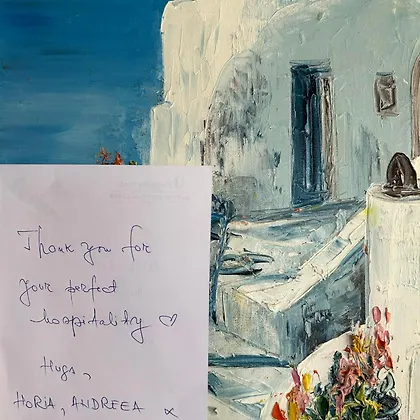 Thank you for
your perfect
hospitality ♡
Hugs,
HORIA, ANDREEA x